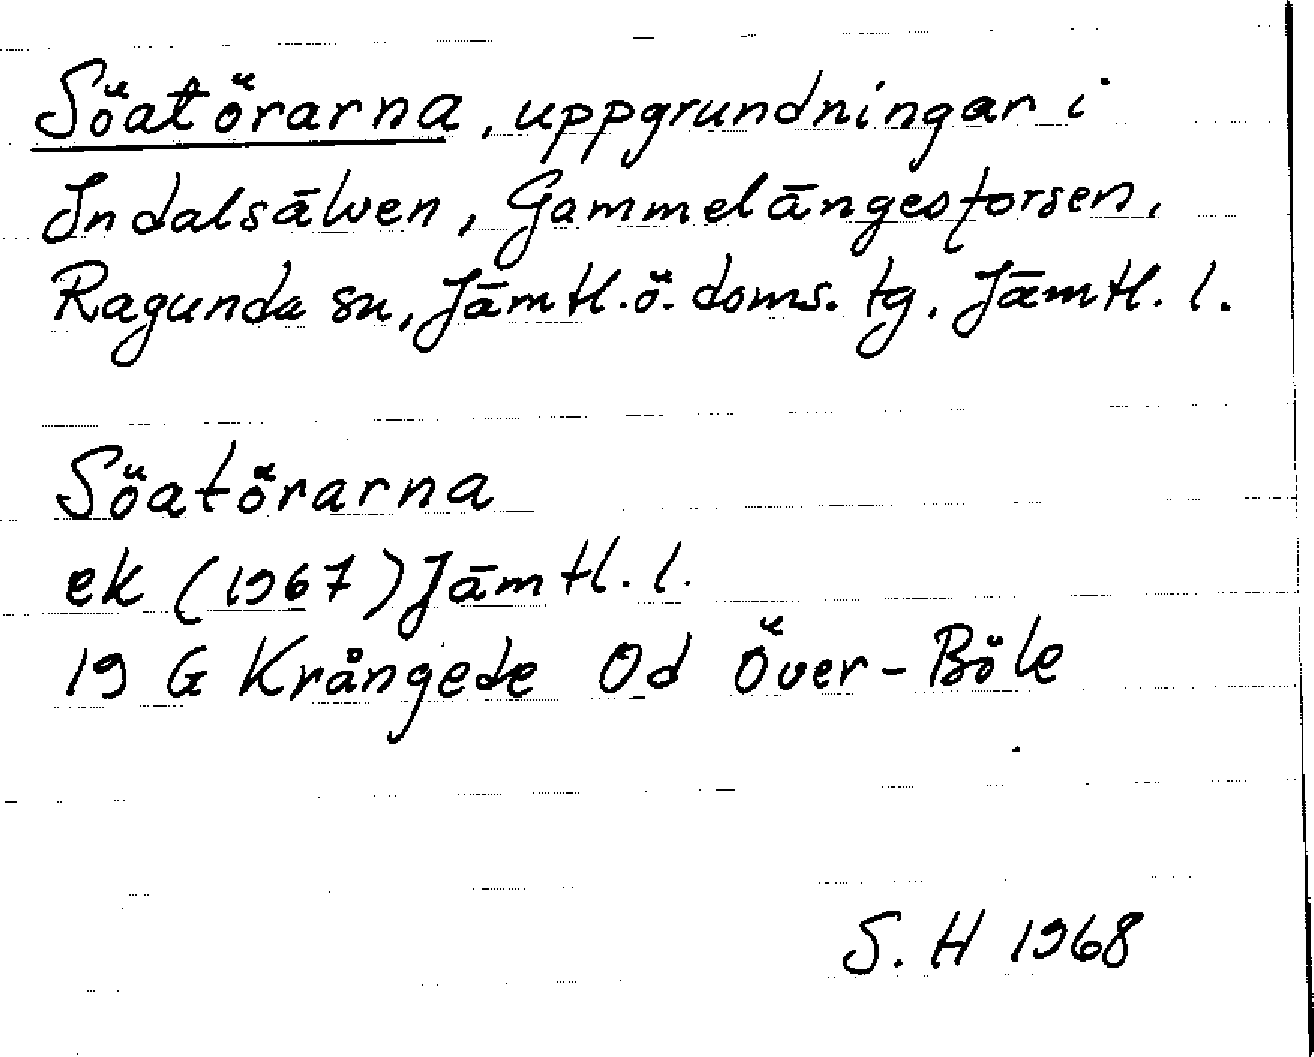 Söatörarna, uppgrundningar i
Indalsälven, Gammelängesforsen,
Ragunda sn, Jämtl.ö. doms. tg. Jämtl. l.
Söatörarna
ek (1967) Jämtl. l.
19 G Krångede Od Över-Böle
S. H 1968